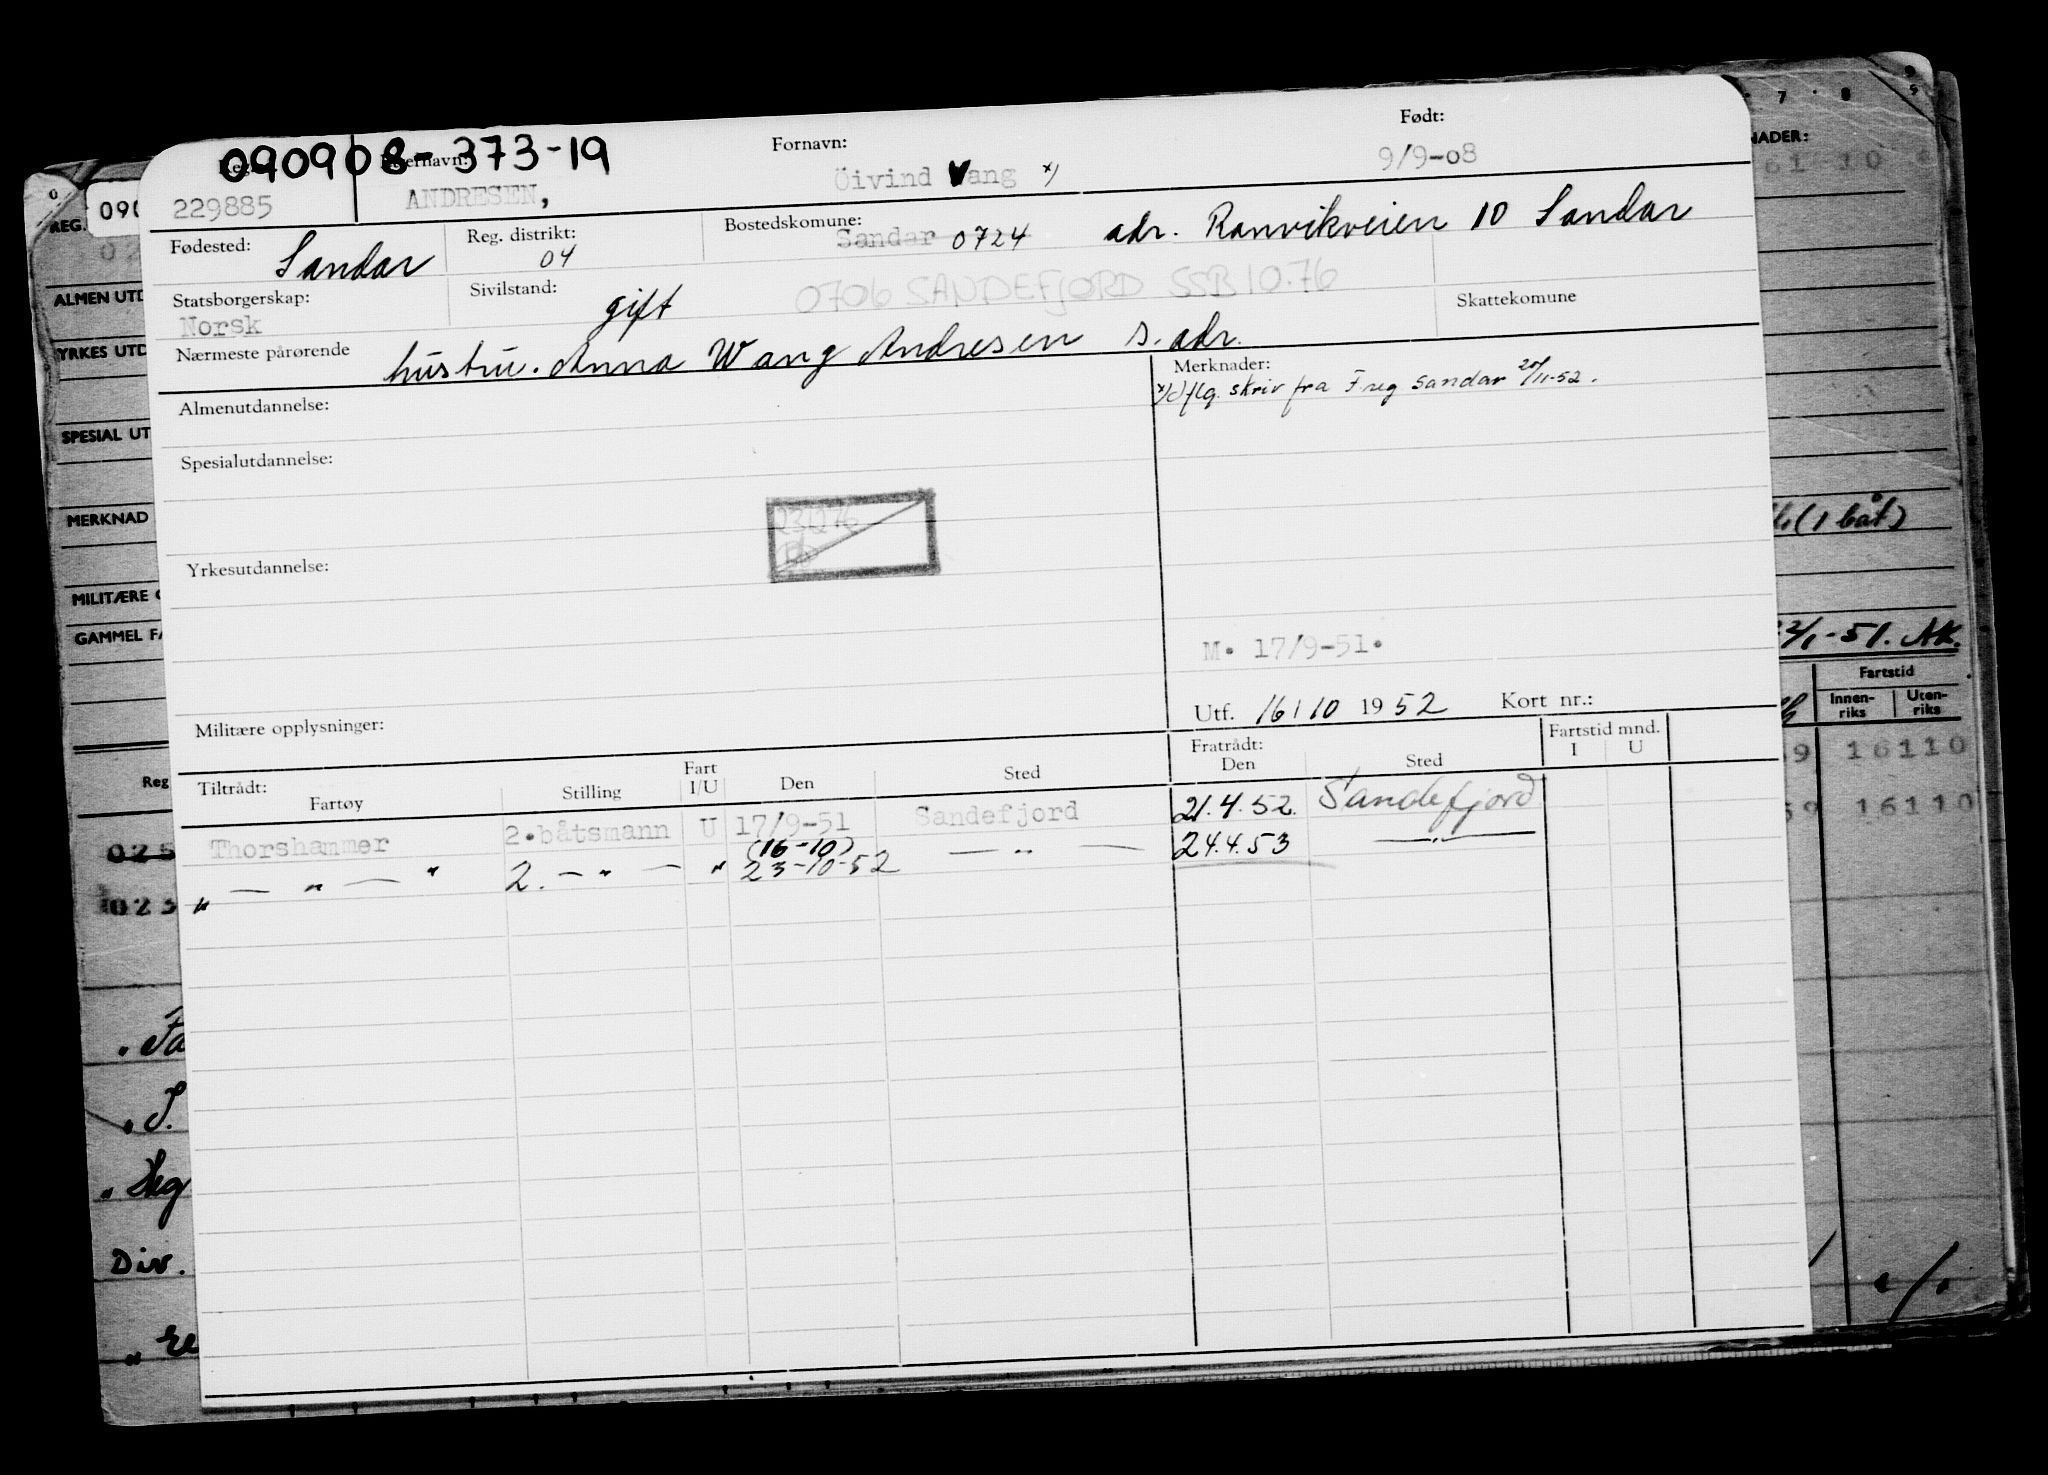 090908-373-19
Fornavn: Født:
229885 ANDRESEN, Öivind Vang x) 9/9-08
Fødested: Sandar Reg. distrikt: 04 Bostedskomune: Sandar 0724 adr. Ranvikveien 10 Sandar
Statsborgerskap: Norsk Sivilstand: gift 0706 SANDEFJORD SSB 10.76 Skattekomune
Nærmeste pårørende hustru. Anna Wang Andresen s. adr.
Merknader:
x) iflg. skriv fra Freg Sandar 20/11-52.
Almenutdannelse:
Spesialutdannelse:
Yrkesutdannelse:
M. 17/9-51.
Utf. 16/10 1952 Kort nr.:
Militære opplysninger:
Tiltrådt: Fratrådt: Fartstid mnd.
Fartøy Stilling Fart I/U Den Sted Den Sted I U
Thorshammer 2.båtsmann U 17/9-51 Sandefjord 21.4.52. Sandefjord
(16-10)
" — " — " 2. — " — " 23-10-52 — " — 24.4.53 — " —
REG.
ALMEN UTD
YRKES UTD
SPECIAL UT
MERKNAD
MILITÆRE
GAMMEL FA
Reg
025
025
Div.
7 . 8
NADER:
61 10
(1 båt)
2/1-51. AK.
Fartstid
Innen-riks Uten-riks
9 16110
59 16110